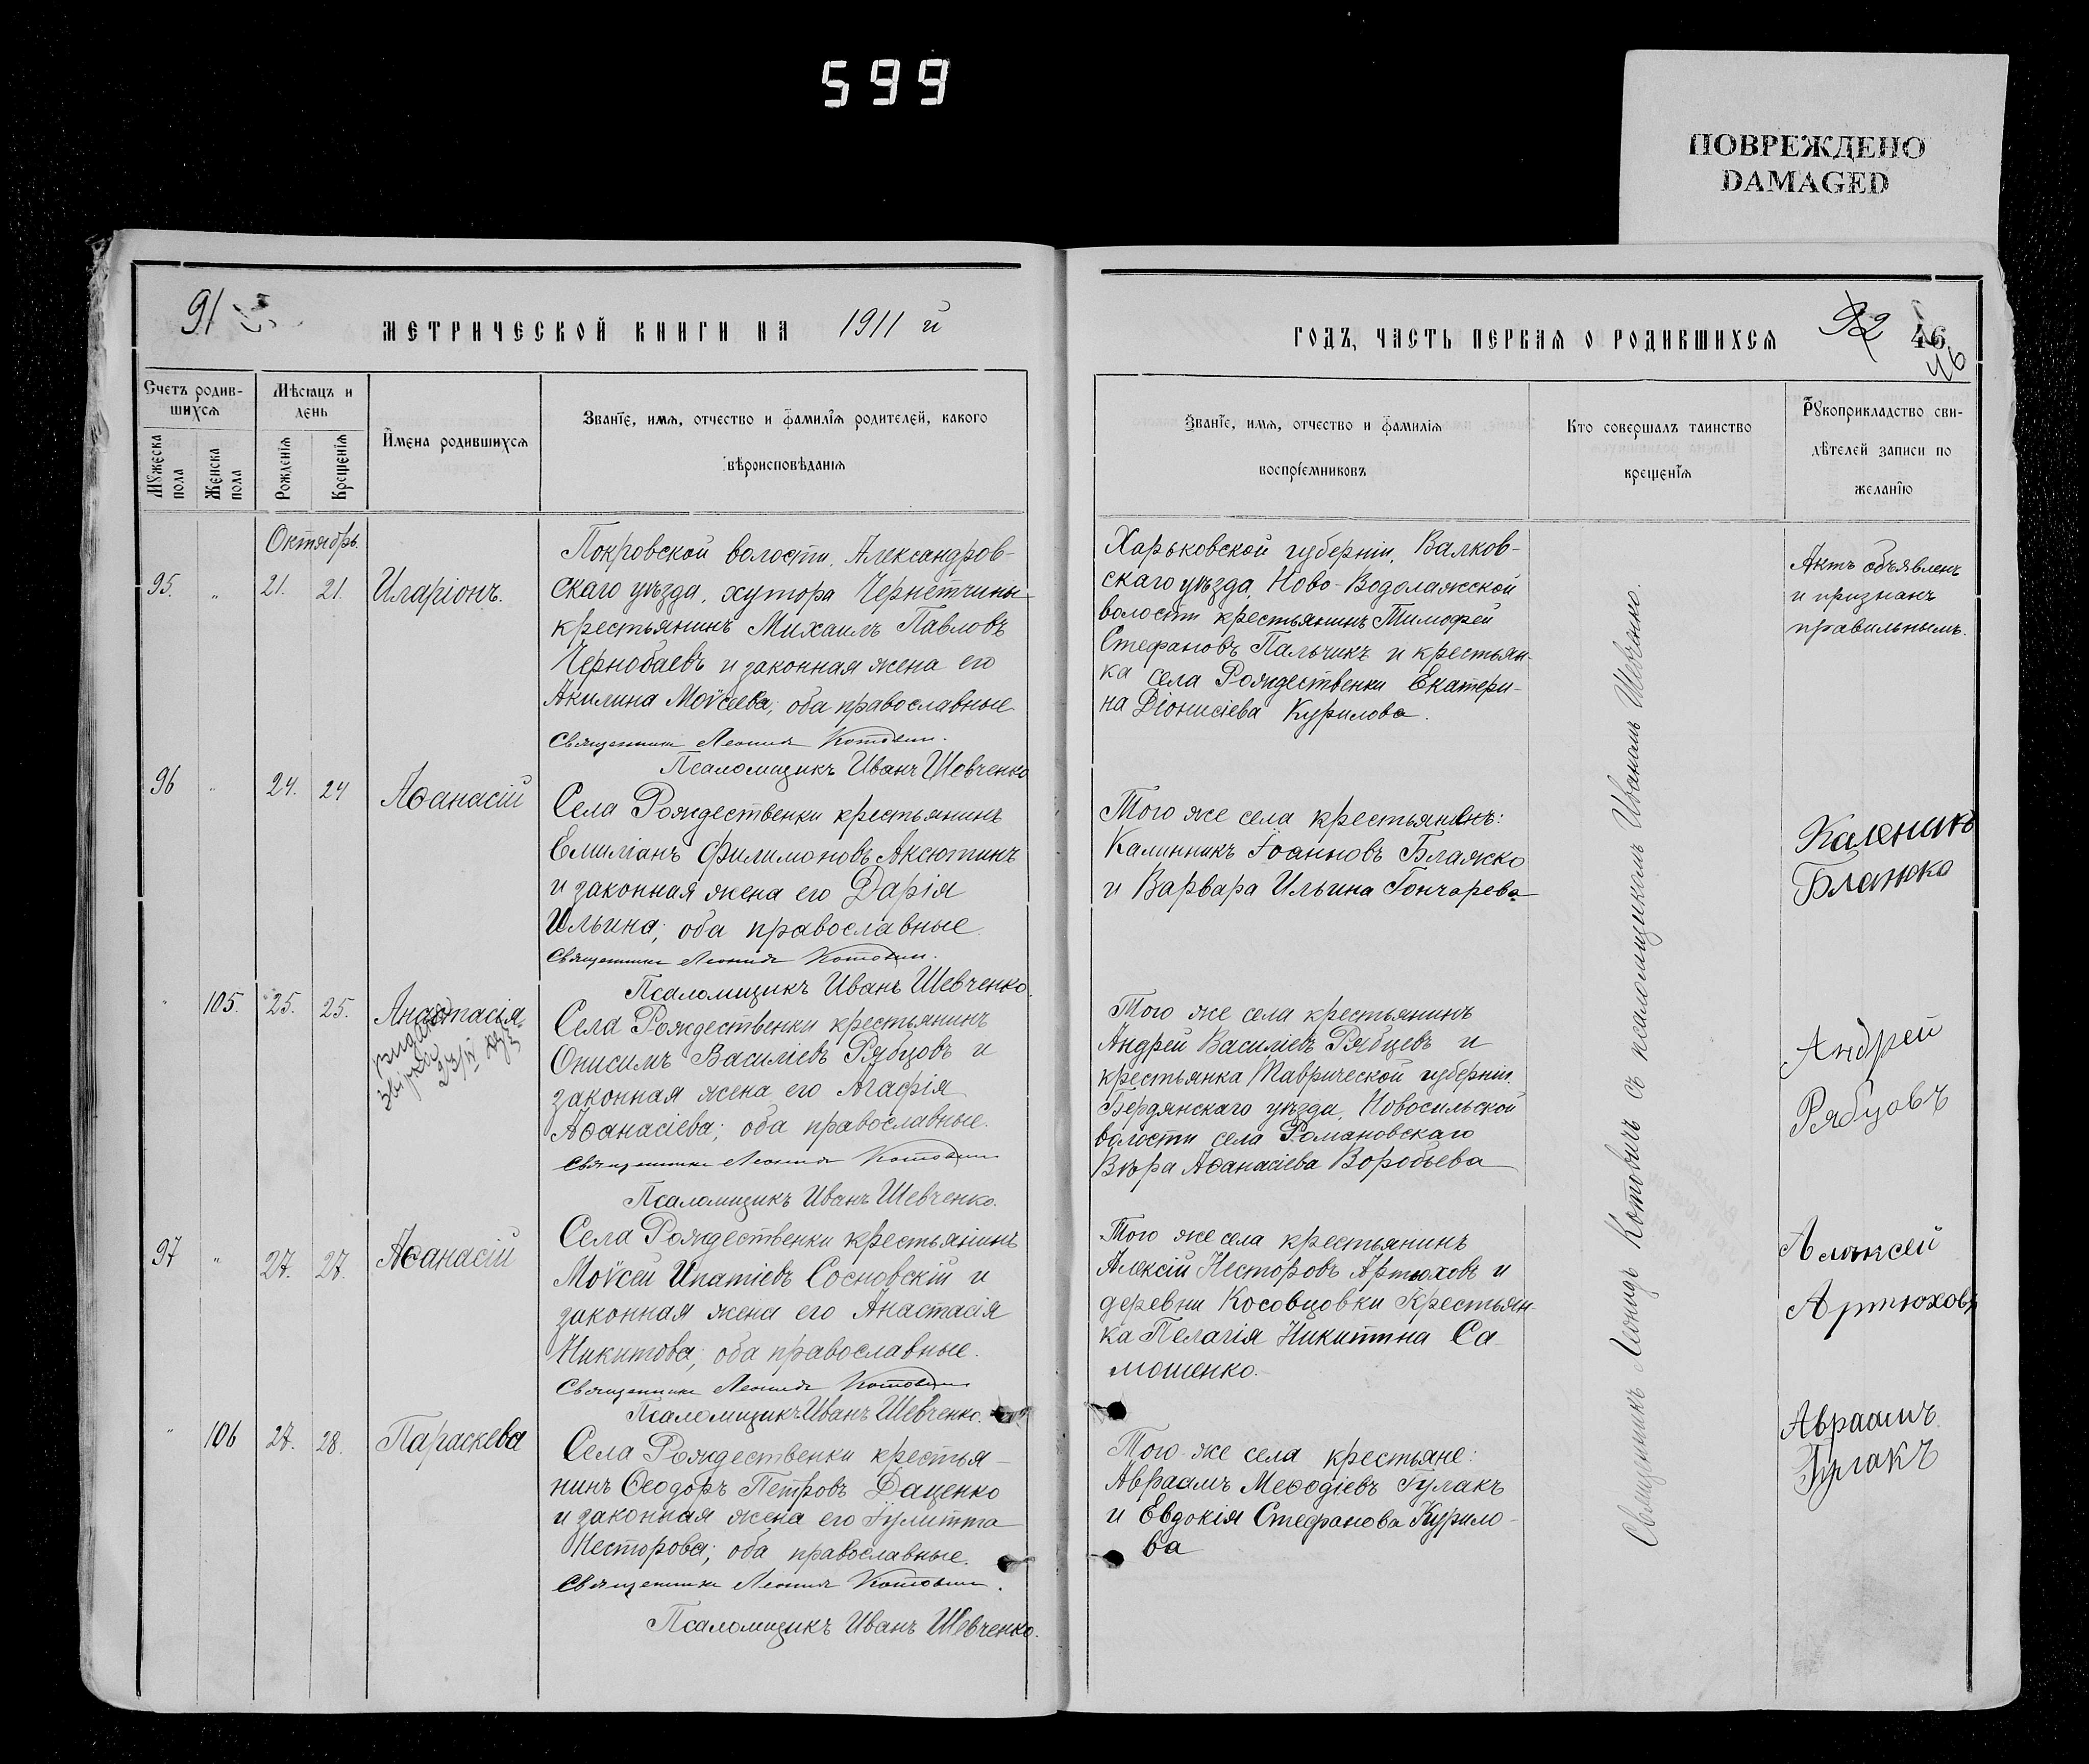 599
ПОВРЕЖДЕНО
DAMAGED
91
МЕТРИЧЕСКОЙ КНИГИ НА 1911 й
Счетъ родив-
шихся
Мѣсяцъ и
день
Имена родившихся
Званіе, имя, отчество и фамилія родителей, какого
вѣроисповѣданія
Мужеска
пола
Женска
пола
Рожденія
Крещенія
Октябрь
95. " 21. 21. Иларіонъ.
Покровской волости, Александров-
скаго уѣзда, хутора Чернетчины
крестьянинъ Михаилъ Павловъ
Чернобаевъ и законная жена его
Акилина Моѵсеева; оба православные
Священникъ Леонидъ Котовичъ.
Псаломщикъ Иванъ Шевченко
96 " 24. 24 Аѳанасій
Села Рождественки крестьянинъ
Емиліанъ Филимоновъ Аксютинъ
и законная жена его Дарія
Ильина; оба православные
Священникъ Леонидъ Котовичъ.
Псаломщикъ Иванъ Шевченко.
" 105. 25. 25. Анастасія.
Села Рождественки крестьянинъ
Онисимъ Василіевъ Рябцовъ и
законная жена его Агафія
Аѳанасіева; оба православные.
Священникъ Леонидъ Котовичъ
Псаломщикъ Иванъ Шевченко.
97 " 27. 27. Аѳанасій
Села Рождественки крестьянинъ
Моѵсей Ипатіевъ Сосновскій и
законная жена его Анастасія
Никитова; оба православные.
Священникъ Леонидъ Котовичъ
Псаломщикъ Иванъ Шевченко.
" 106 27. 28. Параскева
Села Рождественки крестья-
нинъ Ѳеодоръ Петровъ Даценко
и законная жена его Іулитта
Несторова; оба православные.
Священникъ Леонидъ Котовичъ.
Псаломщикъ Иванъ Шевченко.
ГОДЪ, ЧАСТЬ ПЕРВАЯ О РОДИВШИХСЯ
92 46
46
Званіе, имя, отчество и фамилія
воспріемниковъ
Кто совершалъ таинство
крещенія
Рукоприкладство сви-
дѣтелей записи по
желанію
Харьковской губерніи, Валков-
скаго уѣзда, Ново-Водолажской
волости крестьянинъ Тимофей
Стефановъ Пальчикъ и крестьян-
ка села Рождественки Екатери-
на Діонисіева Курилова.
Актъ объявленъ
и признанъ
правильнымъ.
Того же села крестьянинъ:
Калинникъ Іоанновъ Блажко
и Варвара Ильина Гончарева
Каленикъ
Блажко
Того же села крестьянинъ
Андрей Василіевъ Рябцевъ и
крестьянка Таврической губерніи
Бердянскаго уѣзда, Новосильской
волости села Романовскаго
Вѣра Аѳанасіева Воробьева
Андрей
Рябцовъ
Того же села крестьянинъ
Алексій Несторовъ Артюховъ и
деревни Косовцовки крестьян-
ка Пелагія Никитина Са
мошенко.
Алѣксей
Артюховъ
Того же села крестьяне:
Авраамъ Меѳодіевъ Гулакъ
и Евдокія Стефанова Курило-
ва
Авраамъ
Гулакъ
Священникъ Леонидъ Котовичъ съ псаломщикомъ Иваномъ Шевченко.